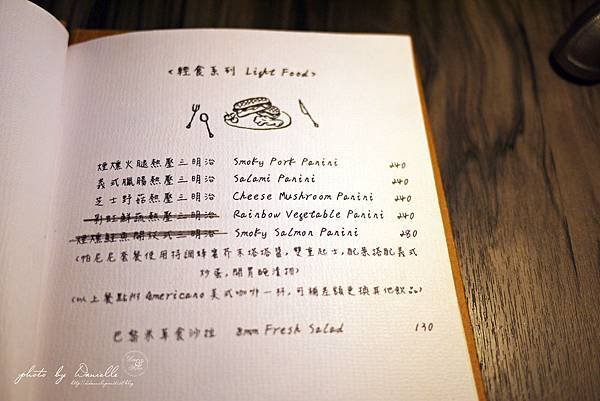 <輕食系列 Light Food>
煙燻火腿熱壓三明治 Smoky Pork Panini 240
義式臘腸熱壓三明治 Salami Panini 240
芝士野菇熱壓三明治 Cheese Mushroom Panini 240
鮮蔬熱壓三明治 Rainbow Vegetable Panini 240
煙燻鮭魚開放式三明治 Smoky Salmon Panini 280
(帕尼尼套餐使用特調蜂蜜芥末塔塔醬,雙重起士,配菜搭配義式
炒蛋,開胃醃漬物)
(以上餐點附 Americano 美式咖啡一杯,可補差額更換其他飲品)
巴黎米草食沙拉 8mm Fresh Salad 130
photo by Danielle